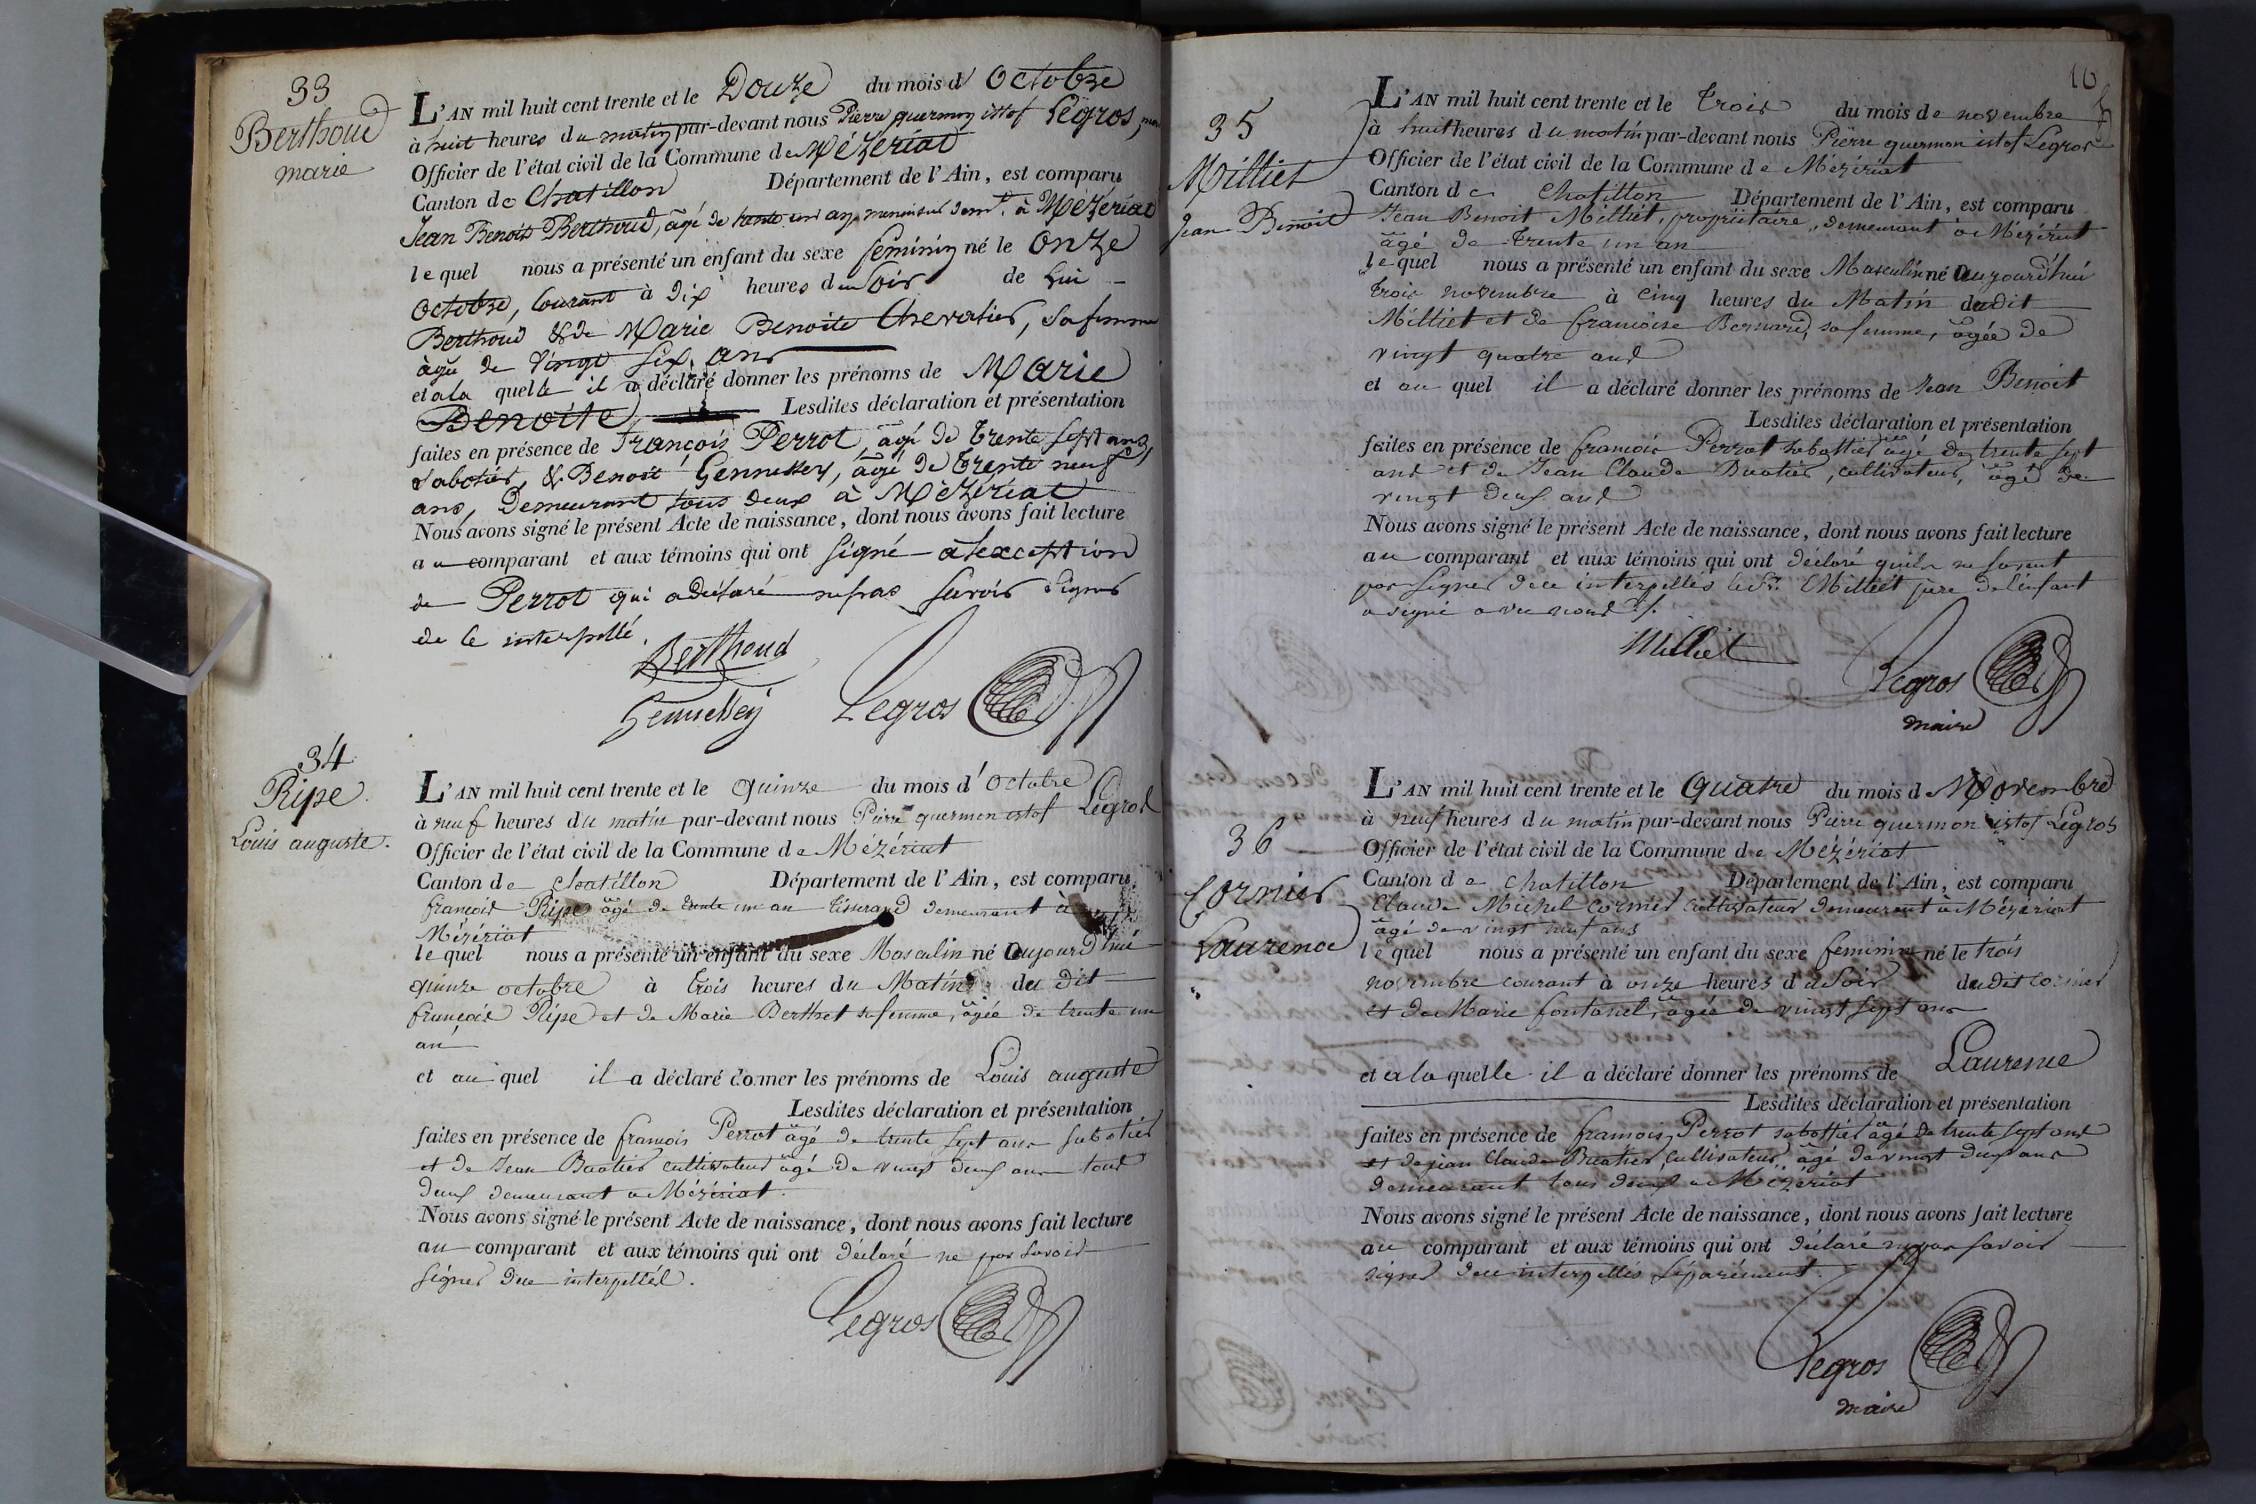 33
Berthoud
marie
L'AN mil huit cent trente et le Douze du mois d' Octobre
à huit heures du matin par-devant nous Pierre quermon istof Legros,
Officier de l'état civil de la Commune de Mézériat
Canton de Chatillon Département de l'Ain, est comparu
Jean Benoit Berthoud, âgé de trente un an, demt. à Mézériat
lequel nous a présenté un enfant du sexe féminin né le Onze
Octobre, Courant à dix heures du Soir de Lui
Berthoud & de Marie Benoite Chevalier, sa femme
âgée de Vingt Six ans
et a la quelle il a déclaré donner les prénoms de Marie
Benoite Lesdites déclaration et présentation
faites en présence de François Perrot, âgé de trente sept ans,
Sabotier, & Benoit Genneley, âgé de trente neuf
ans, Demeurant tous deux à Mézériat
Nous avons signé le présent Acte de naissance, dont nous avons fait lecture
au comparant et aux témoins qui ont signé à l'exception
de Perrot qui a déclaré ne pas Savoir Signer
de ce interpellé.
Berthoud
Legros
34
Ripe
Louis auguste.
L'AN mil huit cent trente et le quinze du mois d'Octobre
à neuf heures du matin par-devant nous Pierre quermon istof Legros
Officier de l'état civil de la Commune de Mézériat
Canton de chatillon Département de l'Ain, est comparu
françois Ripe âgé de trente un an tisserand demeurant à
Mézériat
lequel nous a présenté un enfant du sexe Masculin né aujourdhui
quinze octobre à trois heures du Matin du dit
françois Ripe et de Marie Berthet sa femme, âgée de trente un
an
et au quel il a déclaré donner les prénoms de Louis auguste
Lesdites déclaration et présentation
faites en présence de françois Perrot âgé de trente sept ans sabotier
et de Jean Buatier cultivateur âgé de vingt deux ans tous
deux demeurant a Mézériat.
Nous avons signé le présent Acte de naissance, dont nous avons fait lecture
au comparant et aux témoins qui ont déclaré ne pas Savoir
signer de ce interpellés.
Legros
10
35
Milliet
Jean Benoit
L'AN mil huit cent trente et le trois du mois de novembre
à huit heures du matin par-devant nous Pierre quermon istof Legros
Officier de l'état civil de la Commune de Mézériat
Canton de Chatillon Département de l'Ain, est comparu
Jean Benoit Milliet, propriétaire, demeurant à Mézériat
âgé de trente un an
lequel nous a présenté un enfant du sexe Masculin né aujourd'hui
trois novembre à cinq heures du Matin dudit
Milliet et de françoise Bernard, sa femme, âgée de
vingt quatre ans
et au quel il a déclaré donner les prénoms de Jean Benoit
Lesdites déclaration et présentation
faites en présence de françois Perrot sabottier âgé de trente sept
ans et de Jean Claude Buatier, cultivateur, âgé de
vingt deux ans
Nous avons signé le présent Acte de naissance, dont nous avons fait lecture
au comparant et aux témoins qui ont déclaré quils ne savent
pas signer de ce interpellés le Sr. Milliet père de l'enfant
a signé avec nous
Milliet
Legros
maire
36
Cormier
Laurence
L'AN mil huit cent trente et le Quatre du mois de Novembre
à neuf heures du matin par-devant nous Pierre quermon istof Legros
Officier de l'état civil de la Commune de Mézériat
Canton de chatillon Département de l'Ain, est comparu
Claude Michel Cormier cultivateur demeurant à Mézériat
âgé de vingt neuf ans
lequel nous a présenté un enfant du sexe feminin né le trois
novembre courant à onze heures du Soir dudit cormier
et de Marie fontanel, âgée de vingt sept ans
et a la quelle il a déclaré donner les prénoms de Laurence
Lesdites déclaration et présentation
faites en présence de françois Perrot sabottier âgé de trente sept ans
et de jean Claude Buatier, Cultivateur, âgé de vingt deux ans
demeurant tous deux a Mézériat
Nous avons signé le présent Acte de naissance, dont nous avons fait lecture
au comparant et aux témoins qui ont déclaré ne pas savoir
signer de ce interpellés séparément.
Legros
maire